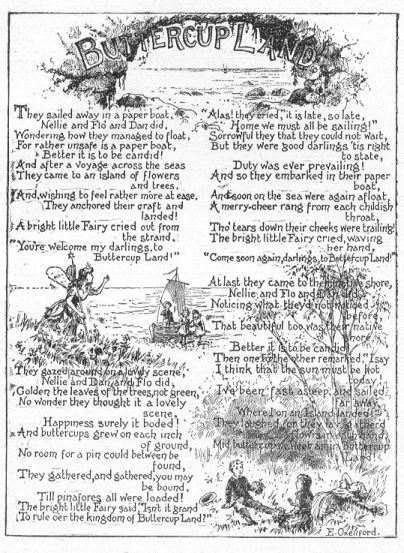 BUTTERCUP LAND
They sailed away in a paper boat,
Nellie and Flo and Dan did,
Wondering how they managed to float,
For rather unsafe is a paper boat,
Better it is to be candid!
And after a voyage across the seas
They came to an island of flowers
and trees,
And, wishing to feel rather more at ease,
They anchored their craft and
landed!
A bright little Fairy cried out from
the strand,
"You're welcome my darlings, to
Buttercup Land!"
They gazed around on a lovely scene,
Nellie and Dan and Flo did,
Golden the leaves of the trees, not green,
No wonder they thought it a lovely
scene,
Happiness surely it boded!
And buttercups grew on each inch
of ground,
No room for a pin could between be
found,
They gathered, and gathered, you may
be bound,
Till pinafores all were loaded!
The bright little Fairy said "Isn't it grand
To rule o'er the kingdom of Buttercup Land?"
"Alas! they cried, "it is late, so late,
Home we must all be sailing!"
Sorrowful they that they could not wait,
But they were good darlings 'tis right
to state,
Duty was ever prevailing!
And so they embarked in their paper
boat,
And soon on the sea were again afloat,
A merry cheer rang from each childish
throat,
Tho' tears down their cheeks were trailing!
The bright little Fairy cried, waving
her hand,
"Come soon again, darlings, to Buttercup Land!"
At last they came to their native shore,
Nellie and Flo and Dan did,
Noticing what they'd not noticed
before,
That beautiful too was their native
shore
Better it is to be candid!
Then one to the other remarked, "I say
I think that the sun must be hot
today,
I've been fast asleep, and sailed
far away,
Where I on an Island landed!"
They laughed, for they lay, gather'd
flowers in hand,
Mid buttercups Buttercup
Land!
E. Oxenford.